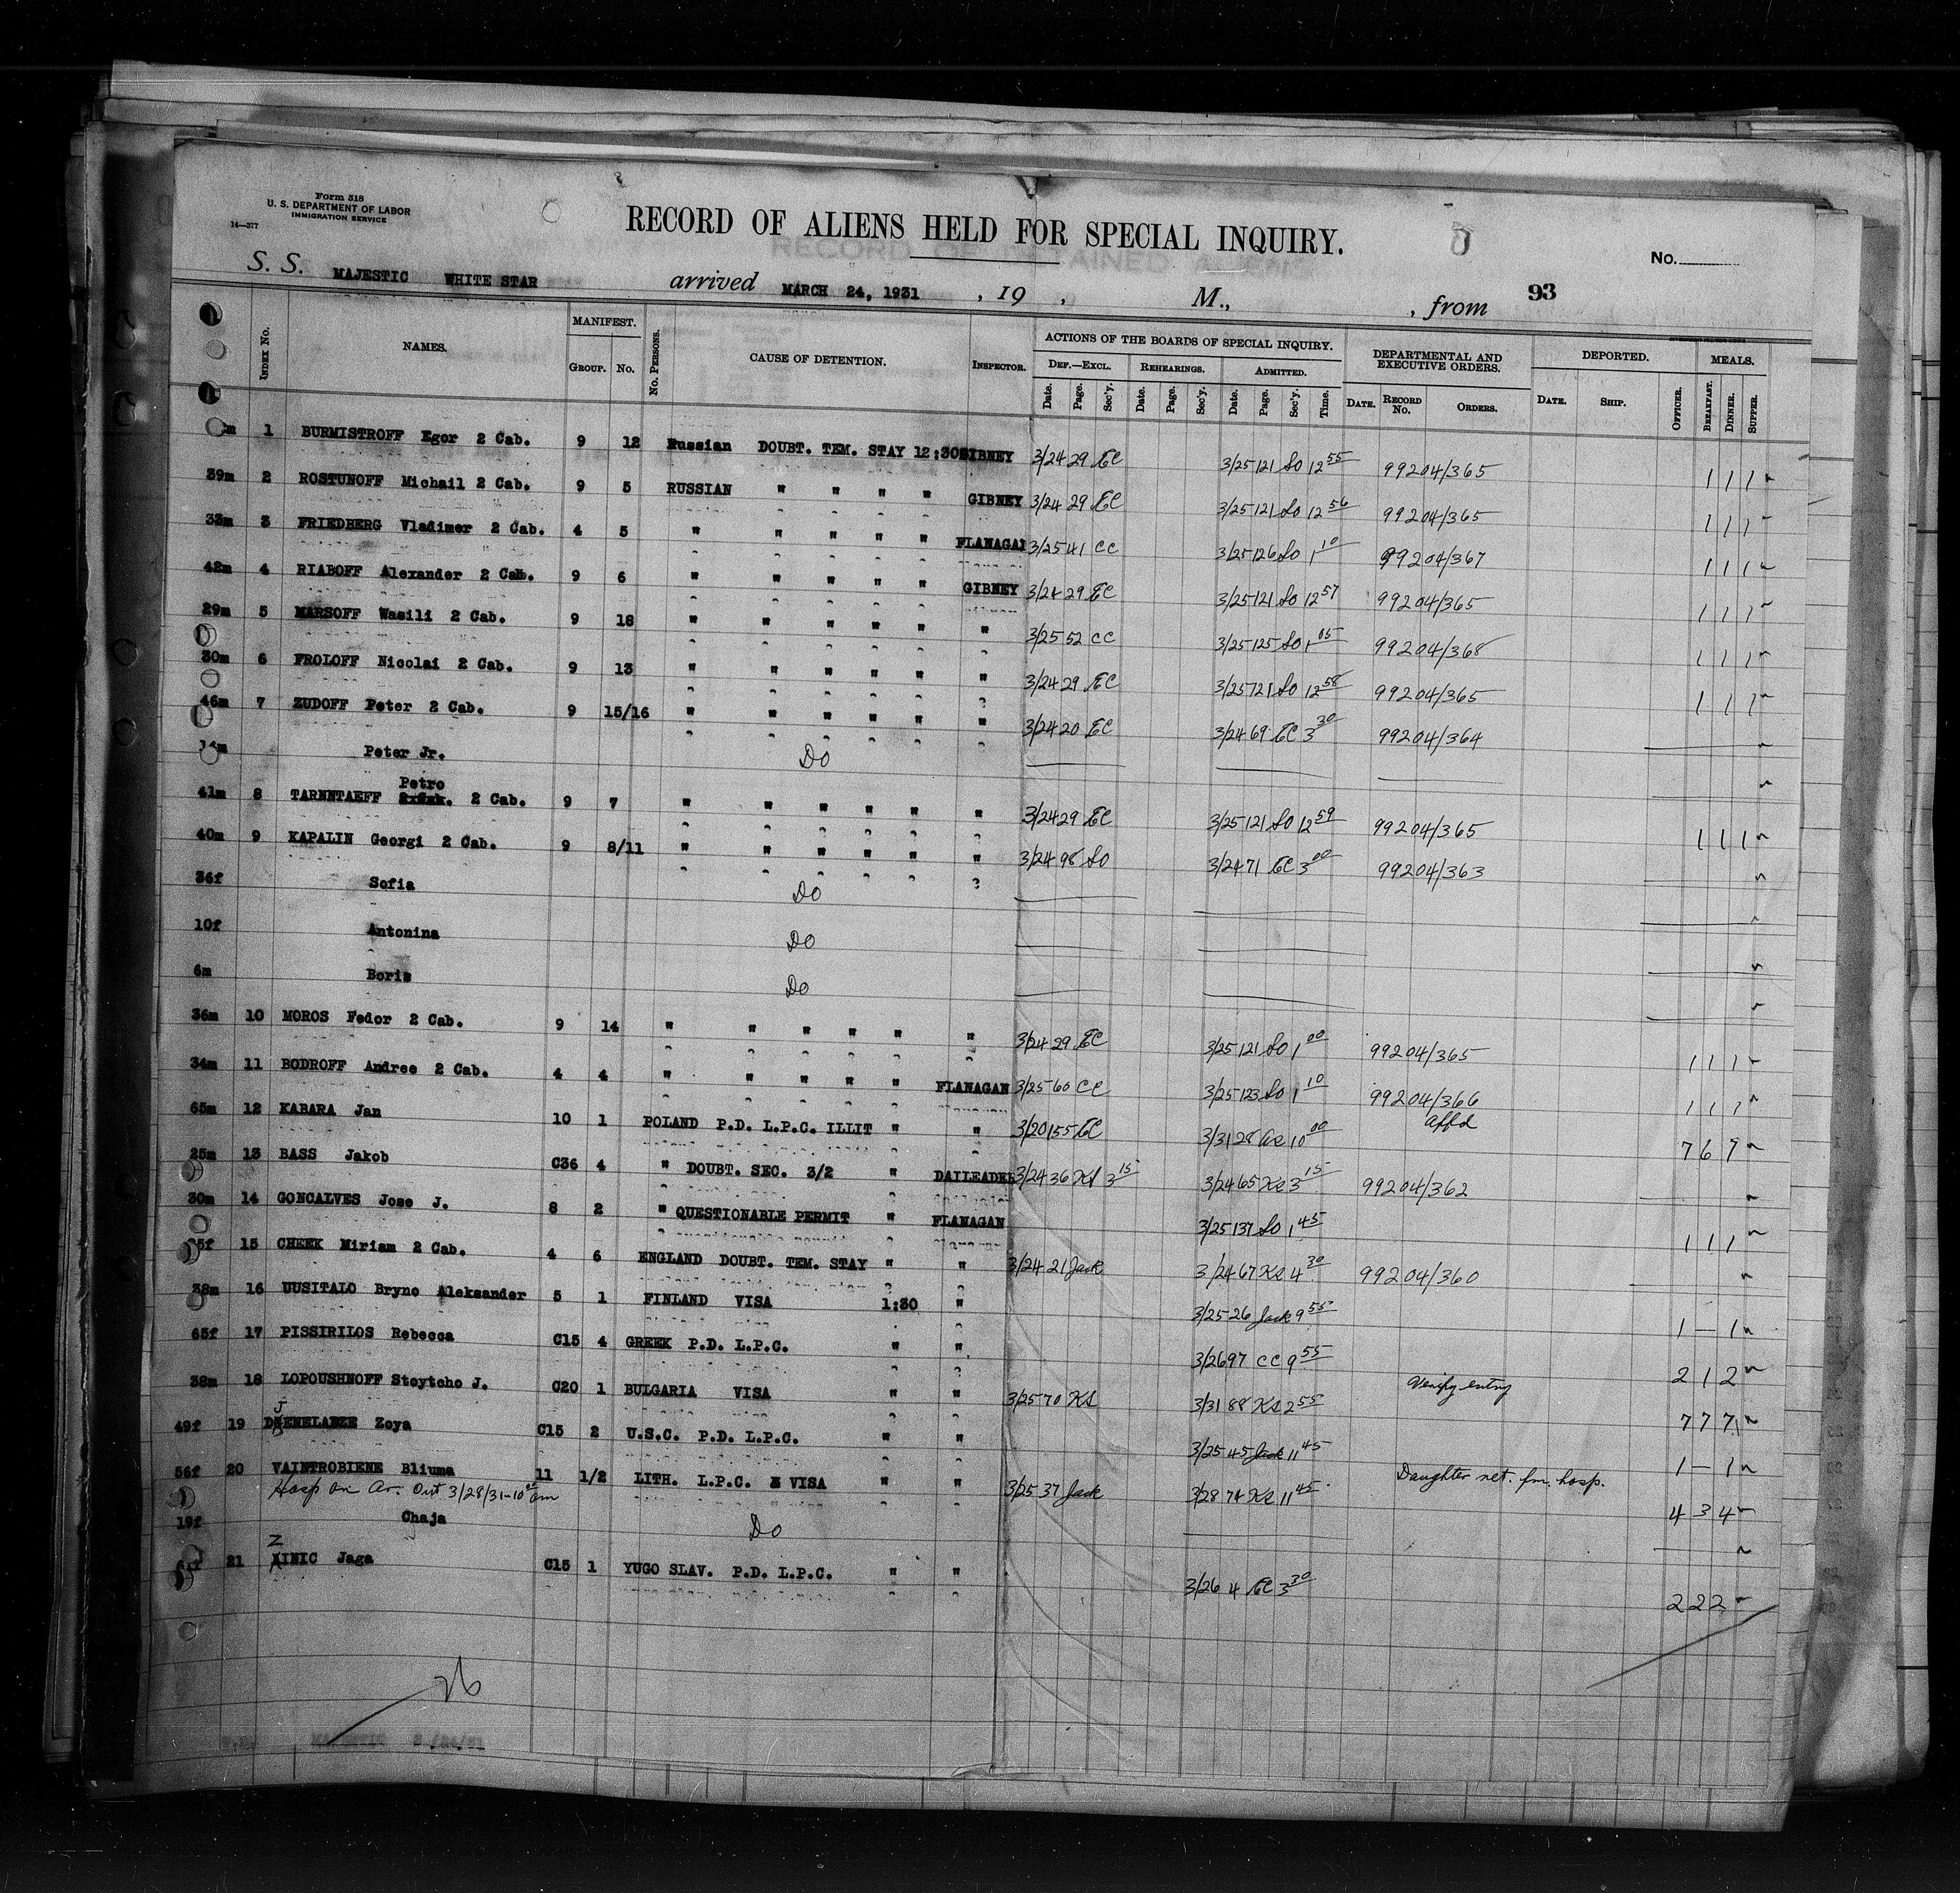 Form 518
U. S. DEPARTMENT OF LABOR
IMMIGRATION SERVICE
14—377
RECORD OF ALIENS HELD FOR SPECIAL INQUIRY.
No.
S. S. MAJESTIC WHITE STAR arrived MARCH 24, 1931 , 19 , M., , from 93
INDEX No. NAMES. MANIFEST. GROUP. No. No. PERSONS. CAUSE OF DETENTION. INSPECTOR. ACTIONS OF THE BOARDS OF SPECIAL INQUIRY. DEF.—EXCL. Date. Page. Sec'y. REHEARINGS. Date. Page. Sec'y. ADMITTED. Date. Page. Sec'y. Time. DEPARTMENTAL AND EXECUTIVE ORDERS. DATE. RECORD No. ORDERS. DEPORTED. DATE. SHIP. OFFICER. MEALS. BREAKFAST. DINNER. SUPPER.
m 1 BURMISTROFF Egor 2 Cab. 9 12 Russian DOUBT. TEM. STAY 12:30 GIBNEY 3/24 29 EC 3/25 121 SO 12 55 99204/365 1 1 1
39m 2 ROSTUNOFF Michail 2 Cab. 9 5 RUSSIAN " " " " GIBNEY 3/24 29 EC 3/25 121 SO 12 56 99204/365 1 1 1
33m 3 FRIEDBERG Vladimer 2 Cab. 4 5 " " " " " FLANAGAN 3/25 41 CC 3/25 126 SO 1 10 99204/367 1 1 1
42m 4 RIABOFF Alexander 2 Cab. 9 6 " " " " " GIBNEY 3/24 29 EC 3/25 121 SO 12 57 99204/365 1 1 1
29m 5 MARSOFF Wasili 2 Cab. 9 18 " " " " " " 3/25 52 CC 3/25 125 SO 1 05 99204/368 1 1 1
30m 6 FROLOFF Nicolai 2 Cab. 9 13 " " " " " " 3/24 29 EC 3/25 121 SO 12 58 99204/365 1 1 1
46m 7 ZUDOFF Peter 2 Cab. 9 15/16 " " " " " " 3/24 20 EC 3/24 69 EC 3 30 99204/364
14m Peter Jr. Do
Petro
41m 8 TARNNTAEFF 2 Cab. 9 7 " " " " " " 3/24 29 EC 3/25 121 SO 12 59 99204/365 1 1 1
40m 9 KAPALIN Georgi 2 Cab. 9 8/11 " " " " " " 3/24 98 SO 3/24 71 EC 3 00 99204/363
36f Sofia Do
10f Antonina Do
6m Boris Do
36m 10 MOROS Fedor 2 Cab. 9 14 " " " " " " 3/24 29 EC 3/25 121 SO 1 00 99204/365 1 1 1
34m 11 BODROFF Andree 2 Cab. 4 4 " " " " " FLANAGAN 3/25 60 CC 3/25 123 SO 1 10 99204/366 1 1 1
65m 12 KABARA Jan 10 1 POLAND P.D. L.P.C. ILLIT " " 3/20 155 EC 3/31 28 10 00 Affd 7 6 7
25m 13 BASS Jakob C36 4 " DOUBT. SEC. 3/2 " DAILEADER 3/24 36 KS 3 15 3/24 65 KS 3 15 99204/362
30m 14 GONCALVES Jose J. 8 2 " QUESTIONABLE PERMIT " FLANAGAN 3/25 137 SO 1 45 1 1 1
5f 15 CHEEK Miriam 2 Cab. 4 6 ENGLAND DOUBT. TEM. STAY " " 3/24 21 Jack 3/24 67 KS 4 30 99204/360
38m 16 UUSITALO Bryno Aleksander 5 1 FINLAND VISA 1:30 " 3/25 26 Jack 9 55 1 — 1
65f 17 PISSIRILOS Rebecca C15 4 GREEK P.D. L.P.C. " " 3/26 97 CC 9 55 2 1 2
38m 18 LOPOUSHNOFF Stoytcho J. C20 1 BULGARIA VISA " " 3/25 70 KS 3/31 88 KS 2 55 Verify entry 7 7 7
J
49f 19 DZENELADZE Zoya C15 2 U.S.C. P.D. L.P.C. " " 3/25 45 Jack 11 45 1 — 1
56f 20 VAINTROBIENE Bliuma 11 1/2 LITH. L.P.C. & VISA " " 3/25 37 Jack 3/28 74 KS 11 45 Daughter ret. fm. hosp. 4 3 4
Hosp on Ar. Out 3/28/31-10 00 am
19f Chaja Do
Z
21 XINIC Jaga C15 1 YUGO SLAV. P.D. L.P.C. " " 3/26 4 EC 3 30 2 2 2
26